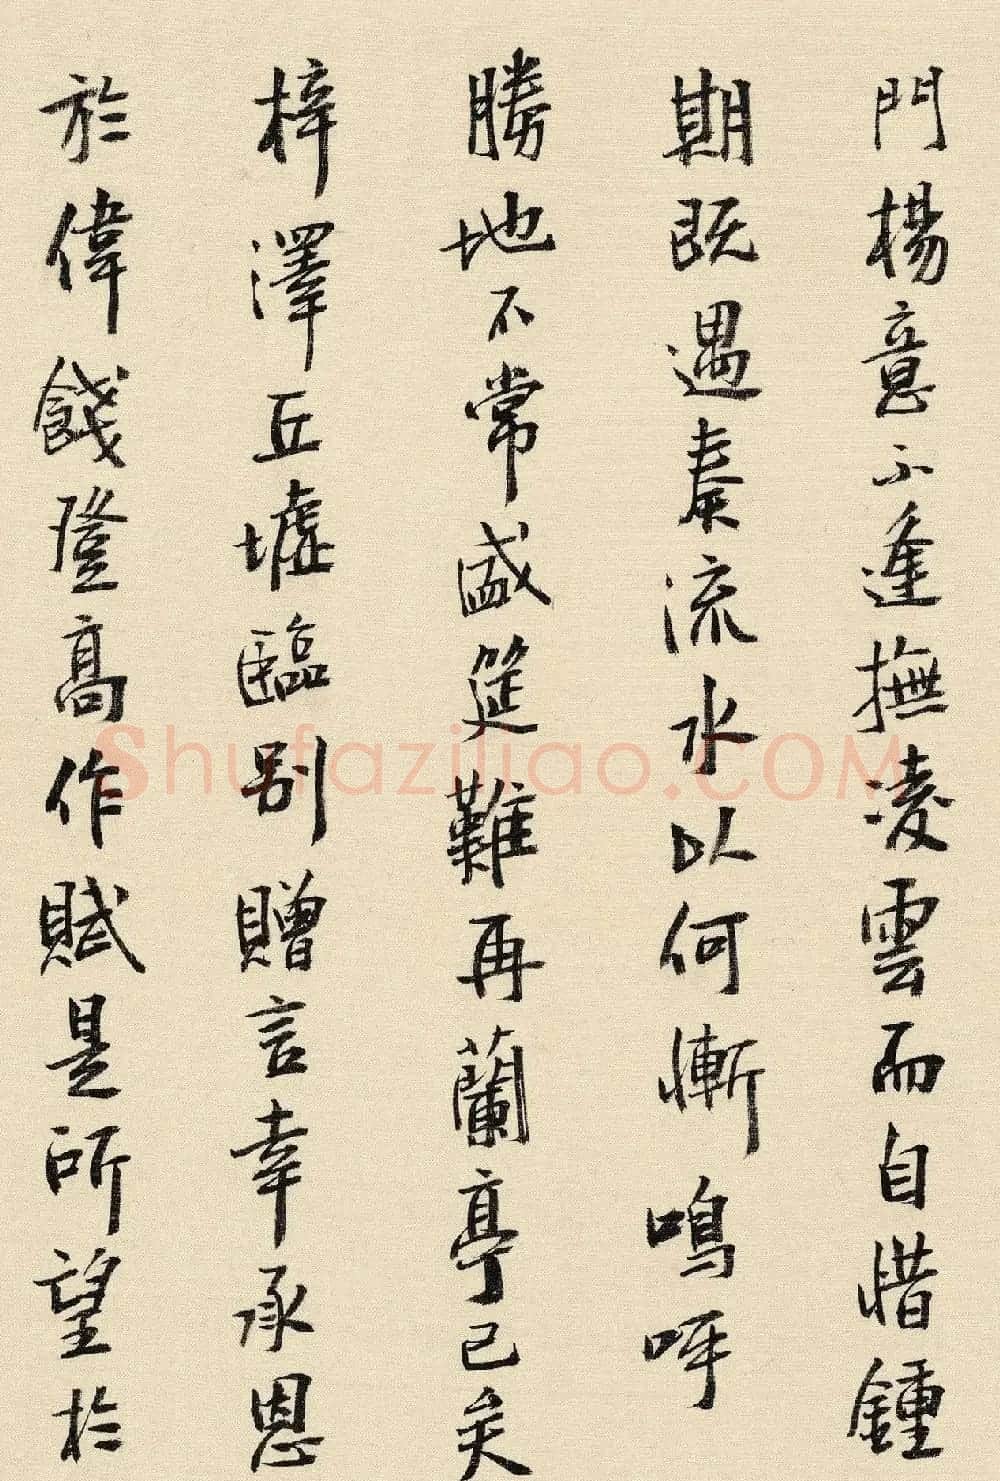 門楊意不逢撫凌雲而自惜鍾
期既遇奏流水以何慚嗚呼
勝地不常盛筵難再蘭亭已矣
梓澤丘墟臨別贈言幸承恩
於偉餞登高作賦是所望於
Shufaziliao.COM